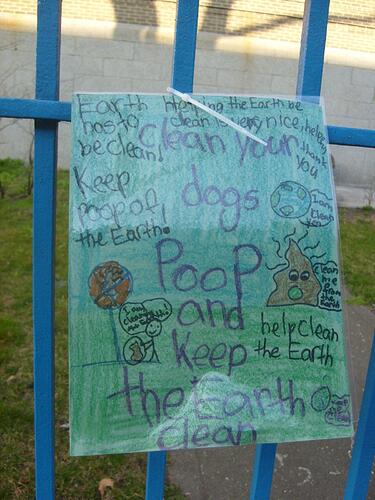 Earth
has to
be clean!
Helping the Earth be
clean is very nice, helpers
thank
you
clean your
dogs
Poop
and
Keep
the Earth
clean
Keep
poop off
the Earth!
I am
clean
Clean
me
from
the
Earth
help clean
the Earth
I am